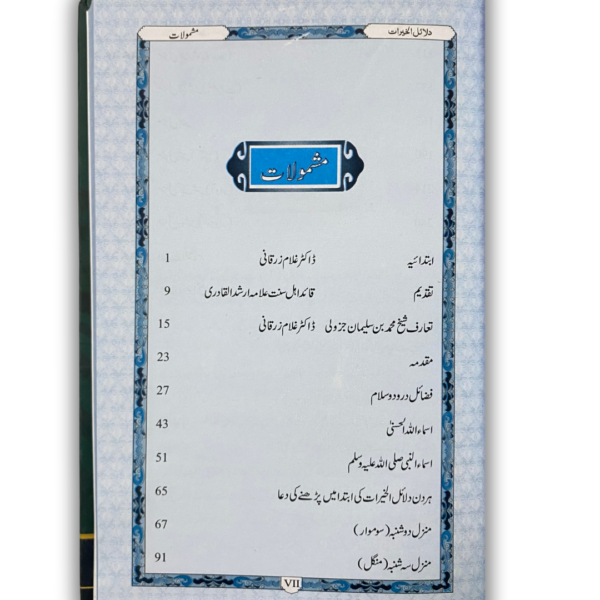 دلائل الخیرات
مشمولات
مشمولات
ابتدائیہ ڈاکٹر غلام زرقانی 1
تقدیم قائد اہل سنت علامہ ارشد القادری 9
تعارف شیخ محمد بن سلیمان جزولی ڈاکٹر غلام زرقانی 15
مقدمہ 23
فضائل درود و سلام 27
اسماء اللہ الحسنیٰ 43
اسماء النبی صلی اللہ علیہ وسلم 51
ہر دن دلائل الخیرات کی ابتدا میں پڑھنے کی دعا 65
منزل دو شنبہ (سوموار) 67
منزل سہ شنبہ (منگل) 91
VII